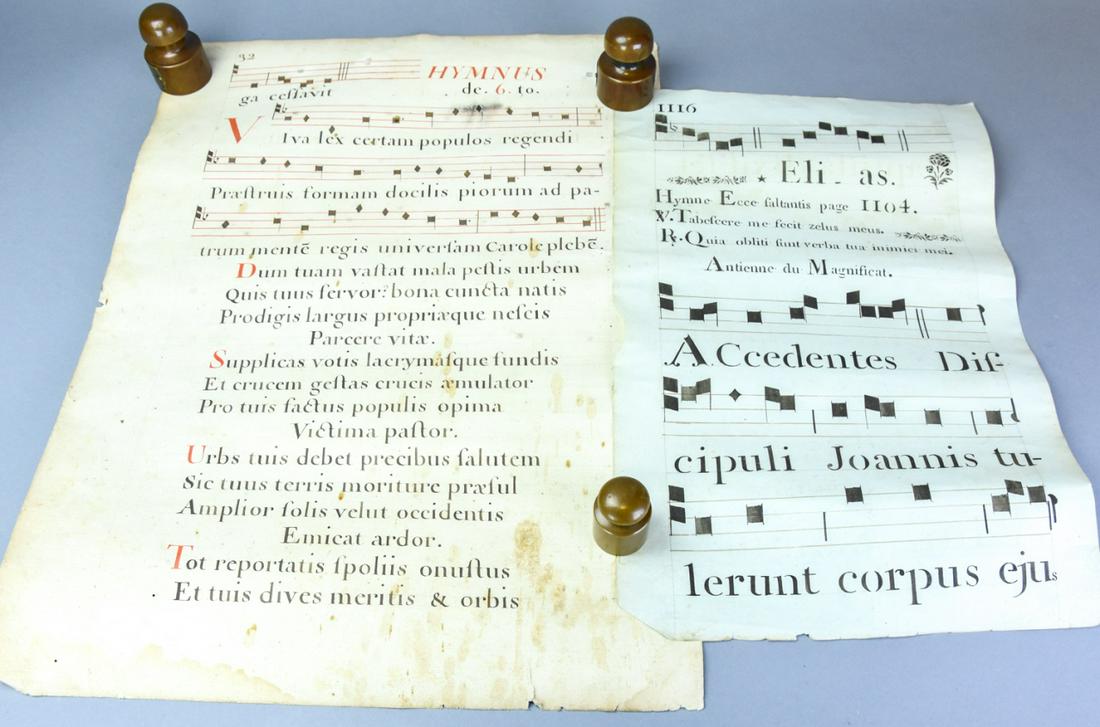 32
HYMNUS
ga ceſſavit de. 6. to.
Viva lex certam populos regendi
Præſtruis formam docilis piorum ad pa-
trum mentē regis univerſam Carole plebē.
Dum tuam vaſtat mala peſtis urbem
Quis tuus fervor: bona cuncta natis
Prodigis largus propriæque neſcis
Parcere vitæ.
Supplicas votis lacrymaſque fundis
Et crucem geſtas crucis æmulator
Pro tuis factus populis opima
Victima paſtor.
Urbs tuis debet precibus ſalutem
Sic tuus terris moriture præſul
Amplior ſolis velut occidentis
Emicat ardor.
Tot reportatis ſpoliis onuſtus
Et tuis dives meritis & orbis
1116
Eli - as.
Hymne Ecce ſaltantis page 1104.
V. Tabeſcere me fecit zelus meus.
R. Quia obliti ſunt verba tua inimici mei.
Antienne du Magnificat.
ACcedentes Diſ-
cipuli Joannis tu-
lerunt corpus ejus